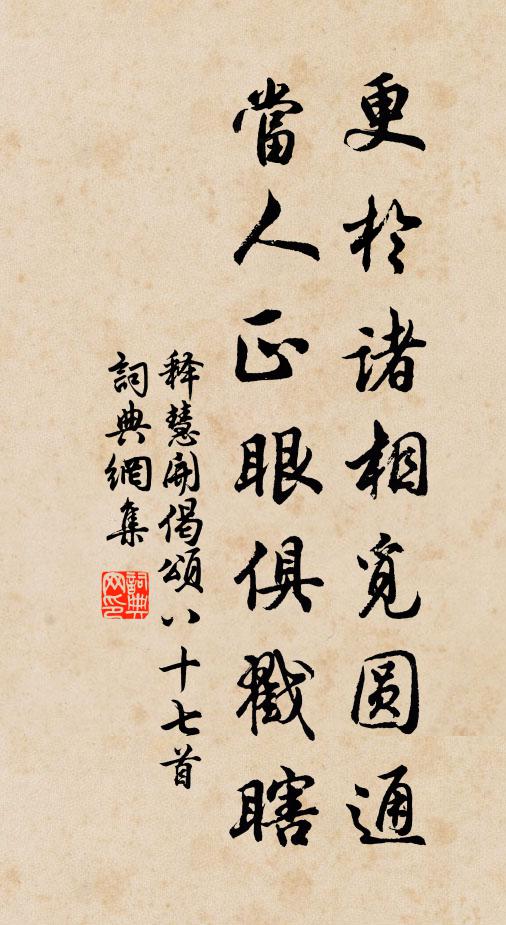 更於諸相覓圆通
當人正眼俱戳瞎
释慧開偈頌八十七首
詞典網集
詞典
网印